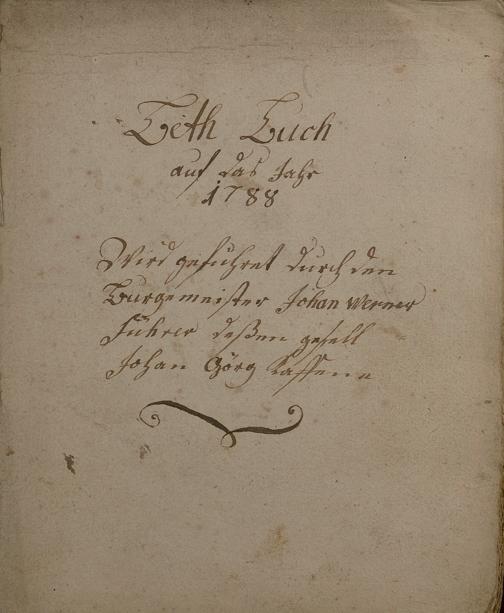 Beth Buch
auf das Jahr
1788
Wird geführet durch den
Burgemeister Johan Werner
Führer deßen gesell
Johan Görg